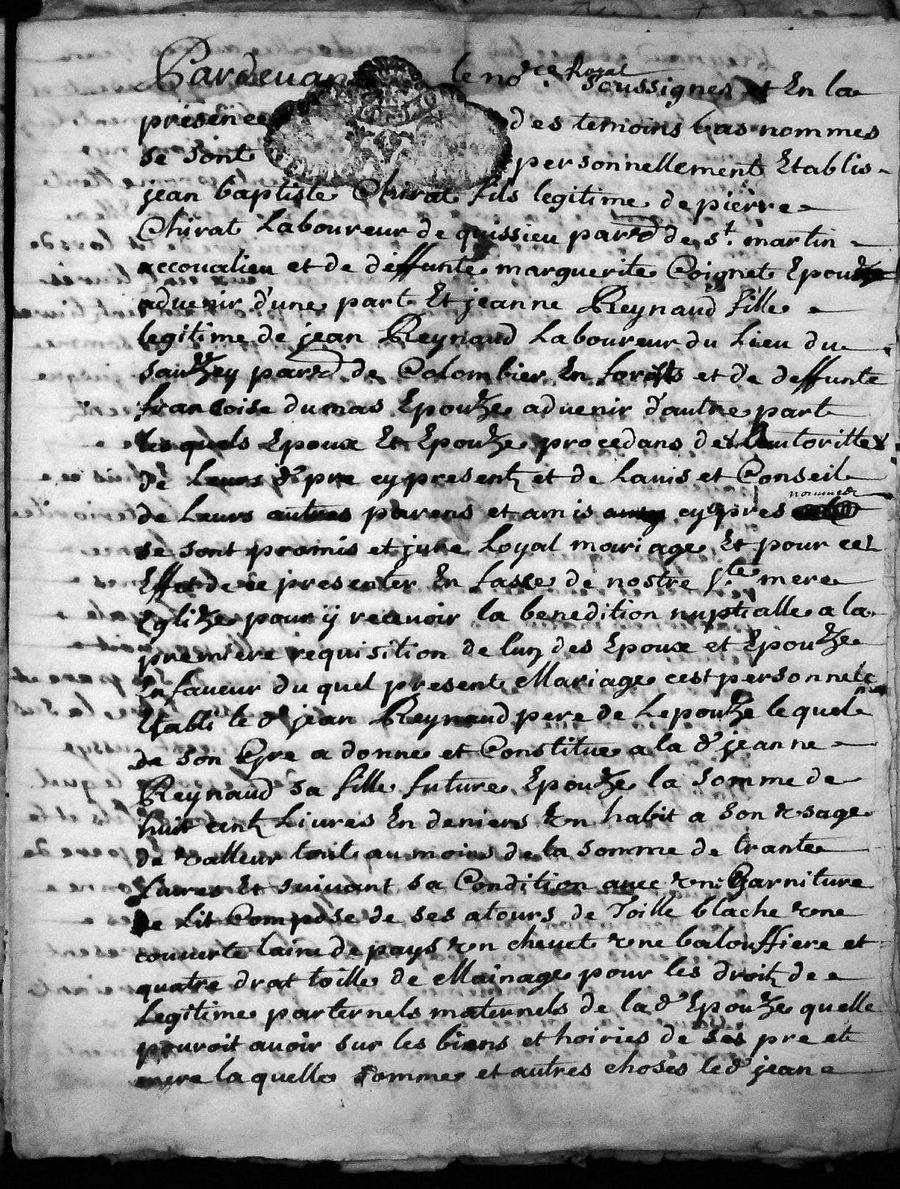 Pardevant le no.re Royal soussignes et En la
présence des temoins bas nommes
se sont personnellement Etablis
jean baptiste Chirat fils legitime de pierre
Chirat Laboureur de quissieu par.d de st. martin
accoualieu et de deffunte marguerite Coignet Epouze
advenir d'une part Et jeanne Reynaud fille
legitime de jean Reynaud Laboureur du Lieu du
sauzey par.d de Colombier En forests et de deffunte
francoise dumas Epouze advenir d'autre part
lesquels Epoux Et Epouze procedans de Lautoritte
de Leurs d. pre cy present et de Lauis et Conseil
de Leurs autres parens et amis cy apres nommes
se sont promis et jure Loyal mariage Et pour cet
Effet de se presenter En fasse de nostre s.te mere
Eglize pour ÿ recevoir la benedition nuptialle a la
premiere requisition de lun des Epoux et Epouze
En faveur du quel present Mariage cest personnele
Etabli le d. jean Reynaud pere de Lepouze lequel
de son Gre a donne et Constitue a la d. jeanne
Reynaud sa fille future Epouze la somme de
huit cent Livres En deniers un habit a son usage
de valleur tout au moins de la somme de trante
Livres Et suivant sa Condition avec une Garniture
de Lit Compose de ses atours de Toille blache une
couverte laine de pays un chevet une balouffiere et
quatre drat toille de Mainage pour les droit de
Legitime parternels maternels de la d. Epouze quelle
pouroit avoir sur les biens et hoiries de ses pre et
mere laquelle somme et autres choses le d. jean